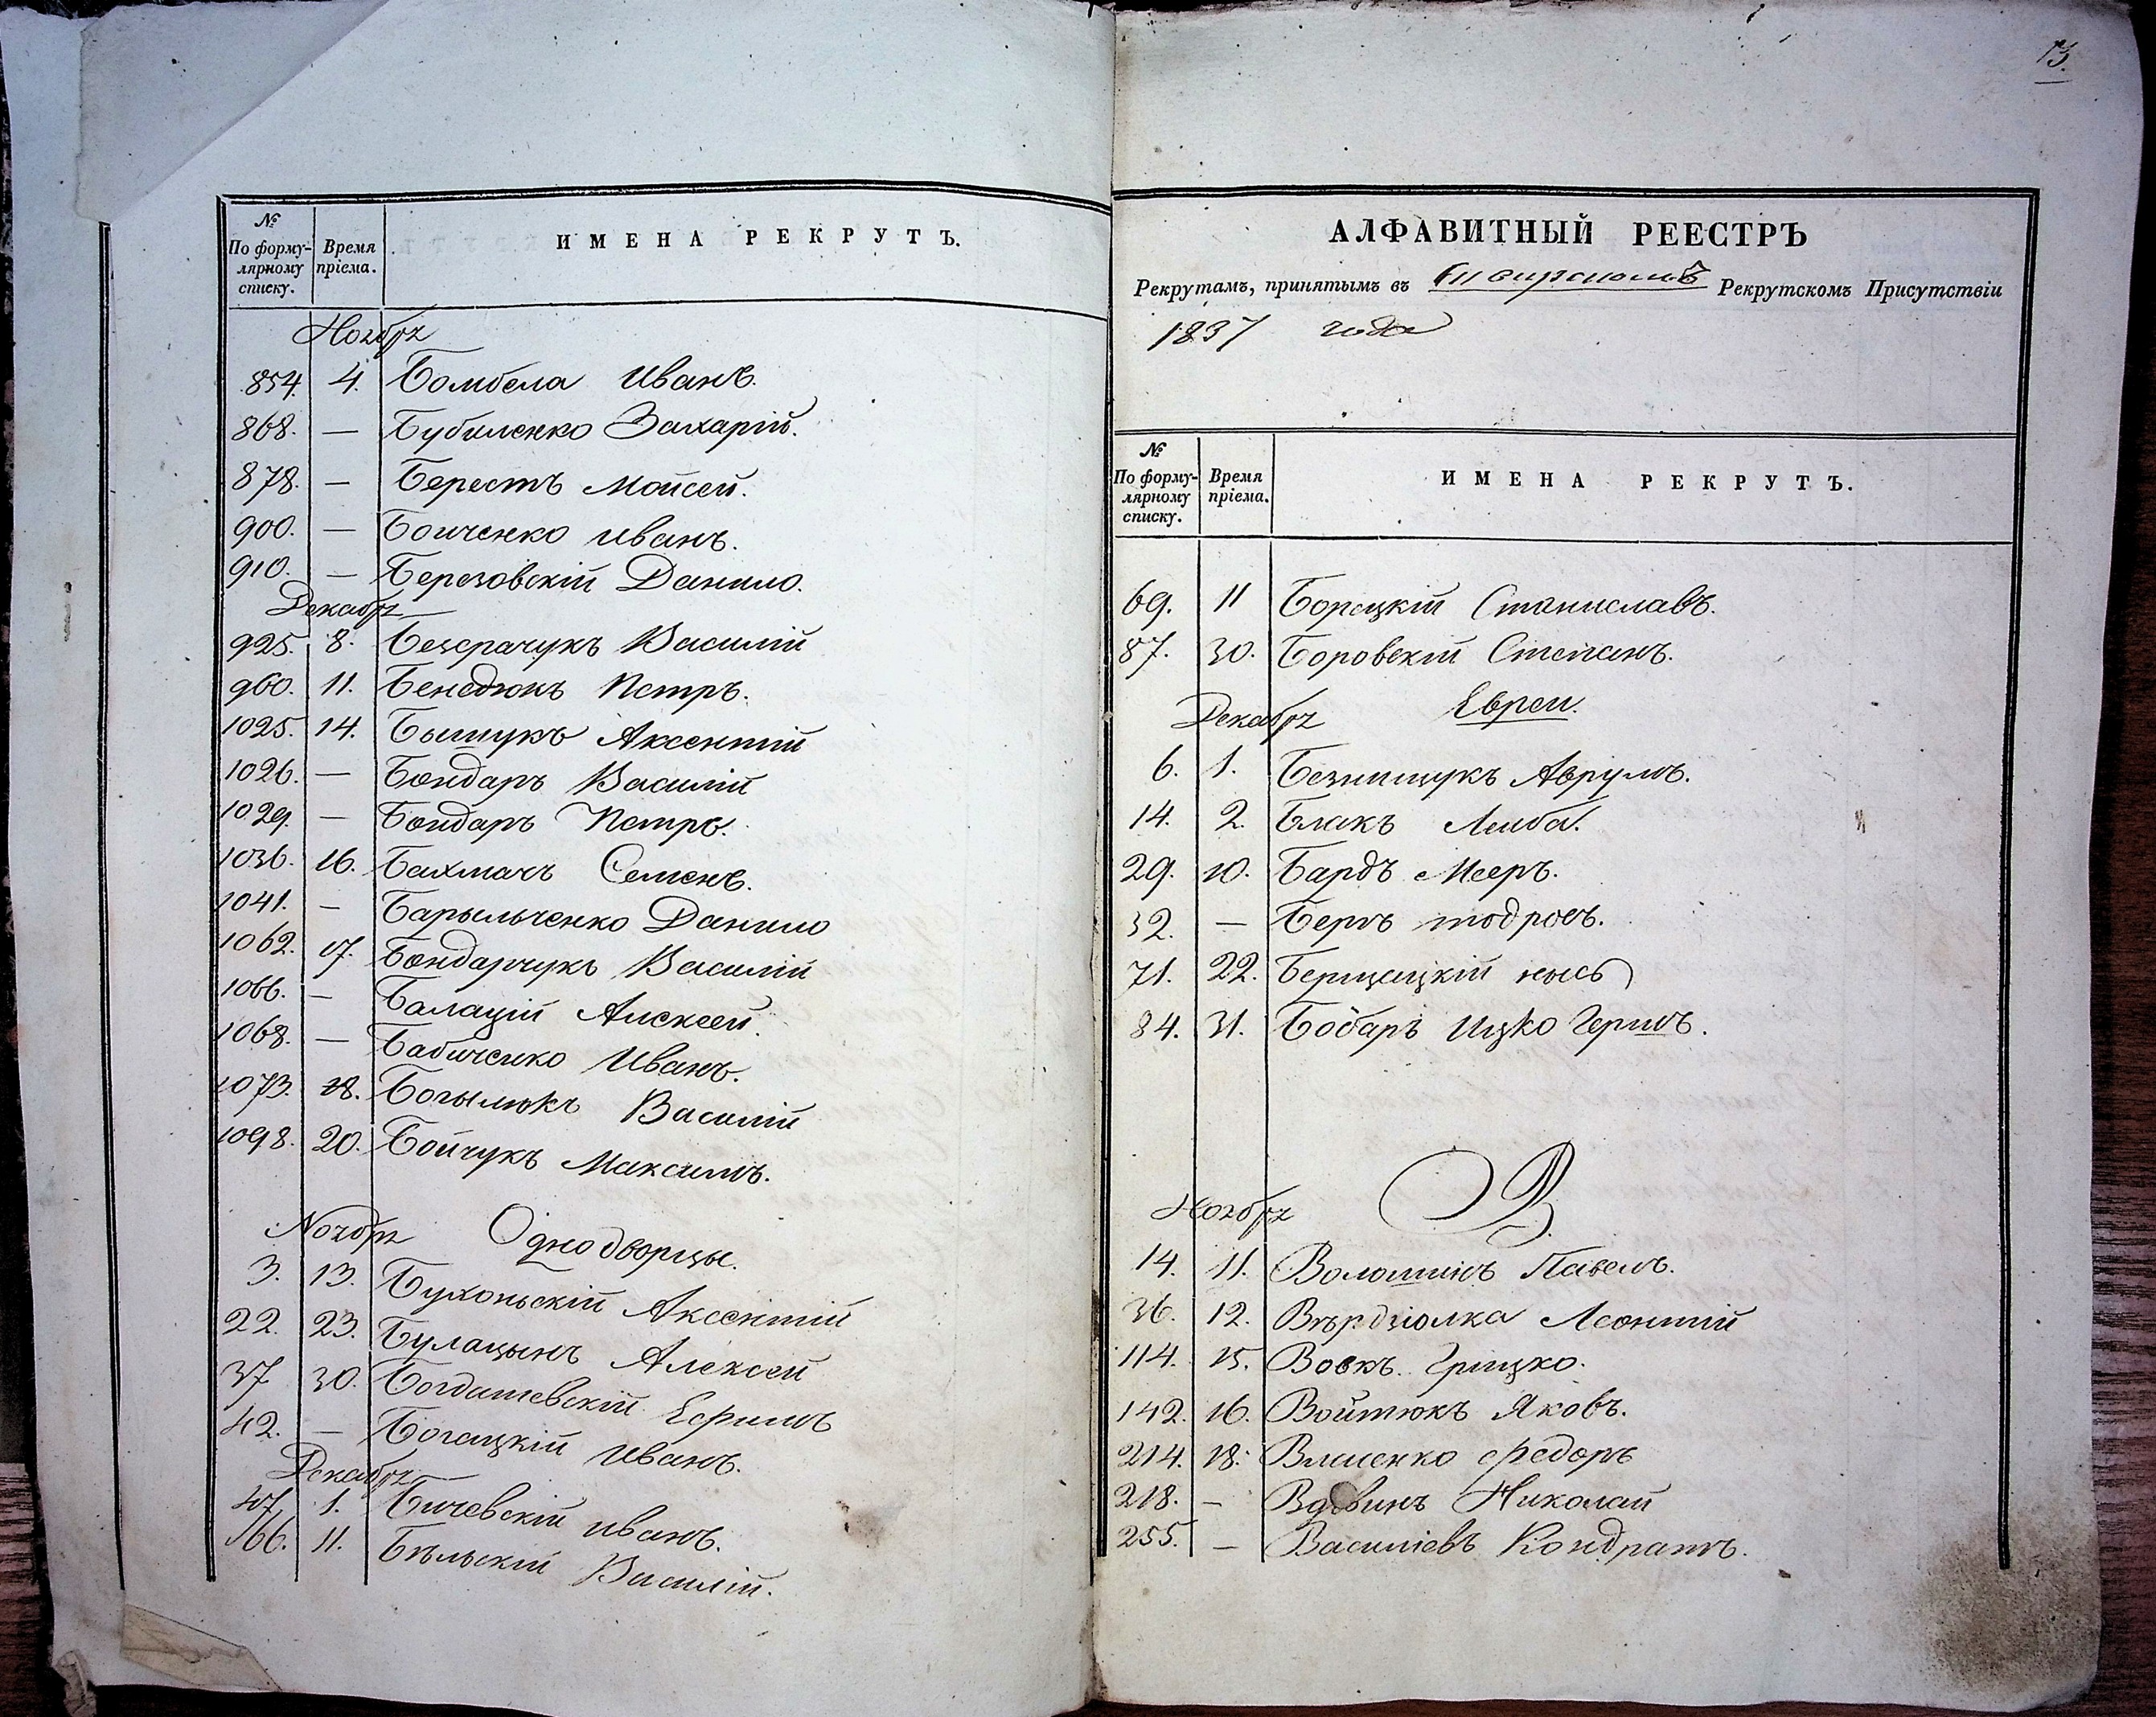 №
По форму-
лярному
списку.
Время
пріема.
ИМЕНА РЕКРУТЪ.
Ноября
854. 4. Бомбела Иванъ.
868. — Бубиленко Захарій.
878. — Берестъ Мойсей.
900. — Бойченко Иванъ.
910. — Березовскій Данило.
Декабря
925. 8. Безерачукъ Василій
960. 11. Бенедюкъ Петръ.
1025. 14. Аксентій
1026. — Бондаръ Василій
1029. — Бондаръ Петръ.
1036. 16. Бахмачъ Семенъ.
1041. — Барыльченко Данило
1062. 17. Бондарчукъ Василій
1066. — Балацій Алексей.
1068. — Бабиченко Иванъ.
1073. 18. Богылюкъ Василій
1098. 20. Бойчукъ Максимъ.
Ноября Однодворцы.
3. 13. Буяхоньскій Аксентій
22. 23. Булацынъ Алексей
37 30. Богдашевскій Ефимъ
42. — Богацкій Иванъ.
Декабря
47. 1. Бичевскій Иванъ.
166. 11. Бѣльскій Василій.
13.
АЛФАВИТНЫЙ РЕЕСТРЪ
Рекрутамъ, принятымъ въ Рекрутскомъ Присутствіи
1837 года
№
По форму-
лярному
списку.
Время
пріема.
ИМЕНА РЕКРУТЪ.
69. 11 Борецкій Станиславъ.
87. 30. Боровскій Степанъ.
Декабря Евреи.
6. 1. Безпищукъ Аврумъ.
14. 2. Блакъ Лейба.
29. 10. Бардъ Мееръ.
32. — Беръ тодросъ.
71. 22. Бершацкій
84. 31. Бобаръ Ицко Гершъ.
В.
Ноября
14. 11. Волошинъ Павелъ.
36. 12. Вѣрдзіолка Леонтій
114. 15. Вовкъ Грицко.
142. 16. Войтюкъ Яковъ.
214. 18. Власенко Федоръ
218. — Вдовинъ Николай
255. — Василіевъ Кондратъ.